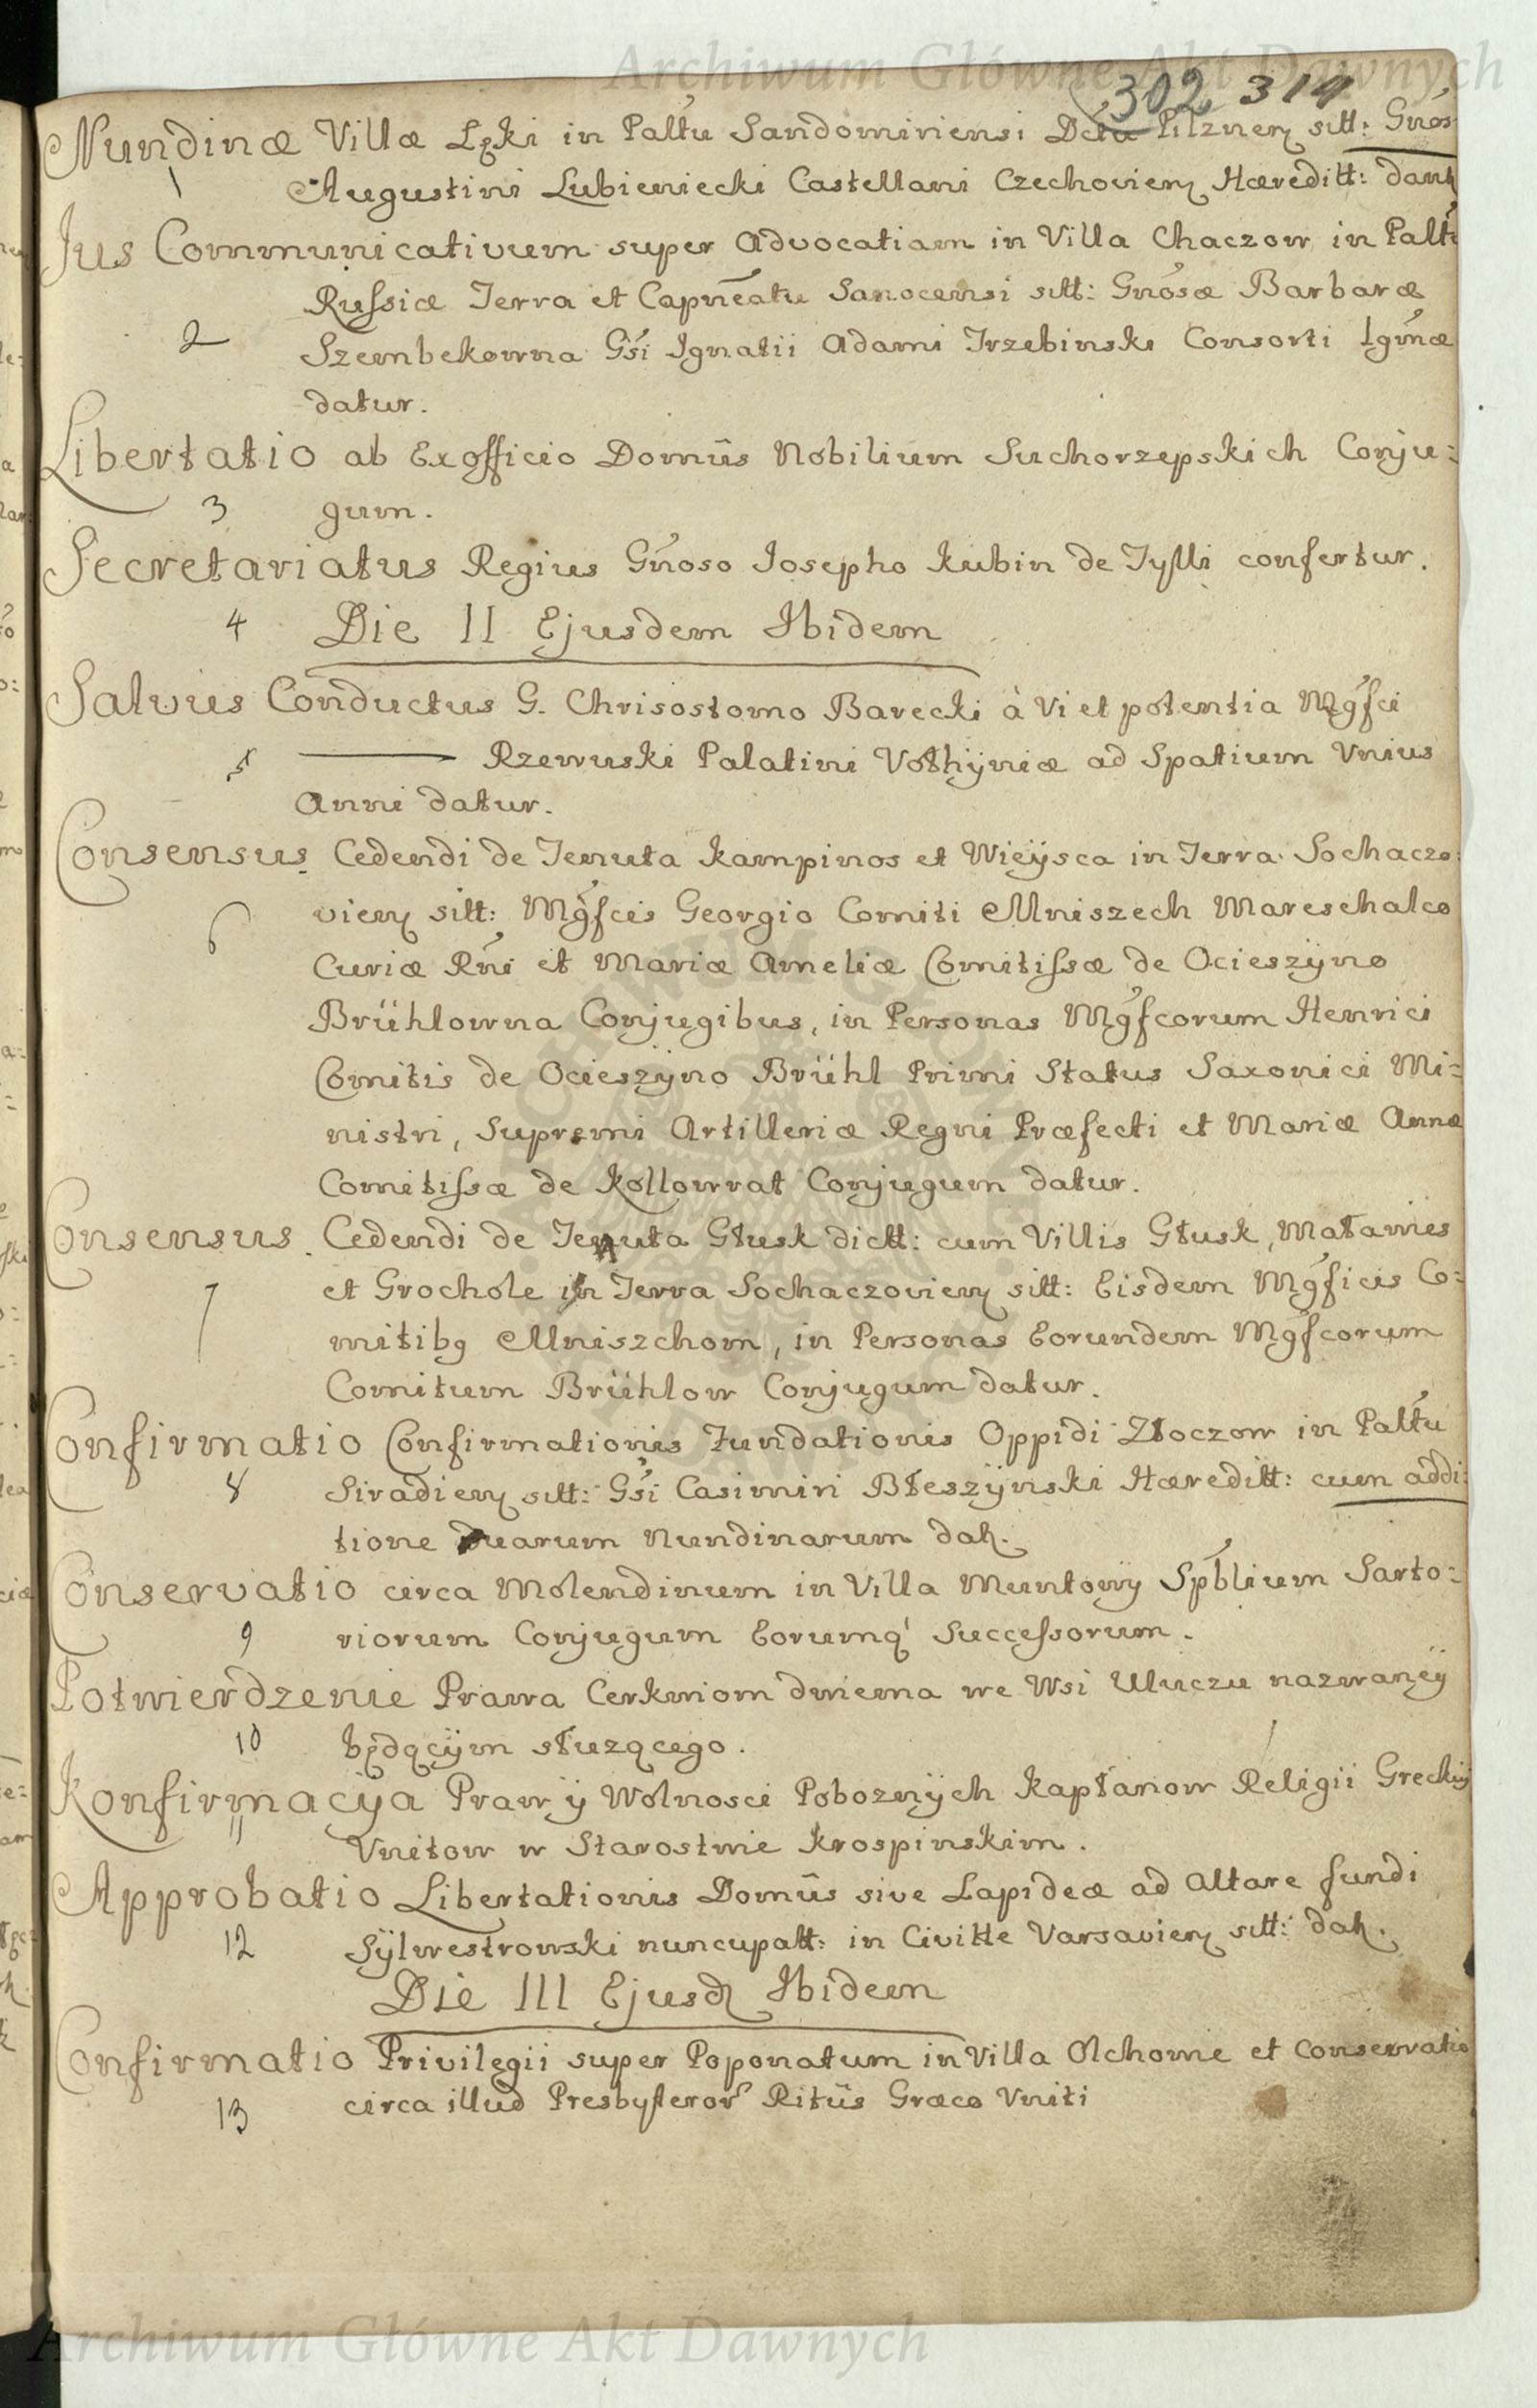 Archiwum Główne Akt Dawnych
302 314
Nundinæ Villæ Lęki in Paltu Sandomiriensi Dctu Pilznen sitt: Gnos
1 Augustini Lubieniecki Castellani Czechovien Hæreditt: dant
Jus Communicativum super Advocatiam in Villa Chaczow in Paltu
Russiæ Terra et Capneatu Sanocensi sitt: Gnosæ Barbaræ
2 Szembekowna Gsi Ignatii Adami Trzebinski Consorti lgmæ
datur.
Libertatio ab Exofficio Domûs Nobilium Suchorzepskich Conju:
3 gum.
Secretariatus Regius Gnoso Josepho Kubin de Tylli confertur.
4 Die II Ejusdem Ibidem
Salvus Conductus G. Chrisostomo Barecki à Vi et potentia Mgfci
5 Rzewuski Palatini Volhÿniæ ad Spatium Vnius
Anni datur.
Consensus Cedendi de Tenuta Kampinos et Wieÿsca in Terra Sochaczo:
6 vien sitt: Mgfcis Georgio Comiti Mniszech Mareschalco
Curiæ Rni et Mariæ Ameliæ Comitissæ de Ocieszÿno
Brühlowna Conjugibus, in Personas Mgfcorum Henrici
Comitis de Ocieszÿno Brühl Primi Status Saxonici Mi:
nistri, Supremi Artilleriæ Regni Præfecti et Mariæ Annæ
Comitissæ de Kollowrat Conjugum datur.
Consensus Cedendi de Tenuta Głusk dictt: cum Villis Głusk, Maławies
7 et Grochole in Terra Sochaczovien sitt: Eisdem Mgficis Co:
mitibg Mniszchom, in Personas Eorundem Mgfcorum
Comitum Brühlow Conjugum datur.
Confirmatio Confirmationis Fundationis Oppidi Złoczow in Paltu
8 Siradien sitt: Gsi Casimiri Błeszÿnski Hæreditt: cum addi:
tione duarum Nundinarum dat.
Conservatio circa Molendinum in Villa Muntowÿ Spblium Sarto:
9 riorum Conjugum Eorumq' Successorum.
Potwierdzenie Prawa Cerkwiom dwiema we Wsi Uluczu nazwaneÿ
10 będącÿm słuzącego.
Konfirmacÿa Praw ÿ Wolnosci Poboznÿch Kapłanow Religii Greckiÿ
11 Vnitow w Starostwie Krospinskim.
Approbatio Libertationis Domûs sive Lapideæ ad Altare fundi
12 Sÿlwestrowski nuncupatt: in Civitte Varsavien sitt: dat.
Die III Ejusd Ibidem
Confirmatio Privilegii super Poponatum in Villa Olchowie et Conservatio
13 circa illud Presbyteror Ritûs Græco Vniti
Archiwum Główne Akt Dawnych